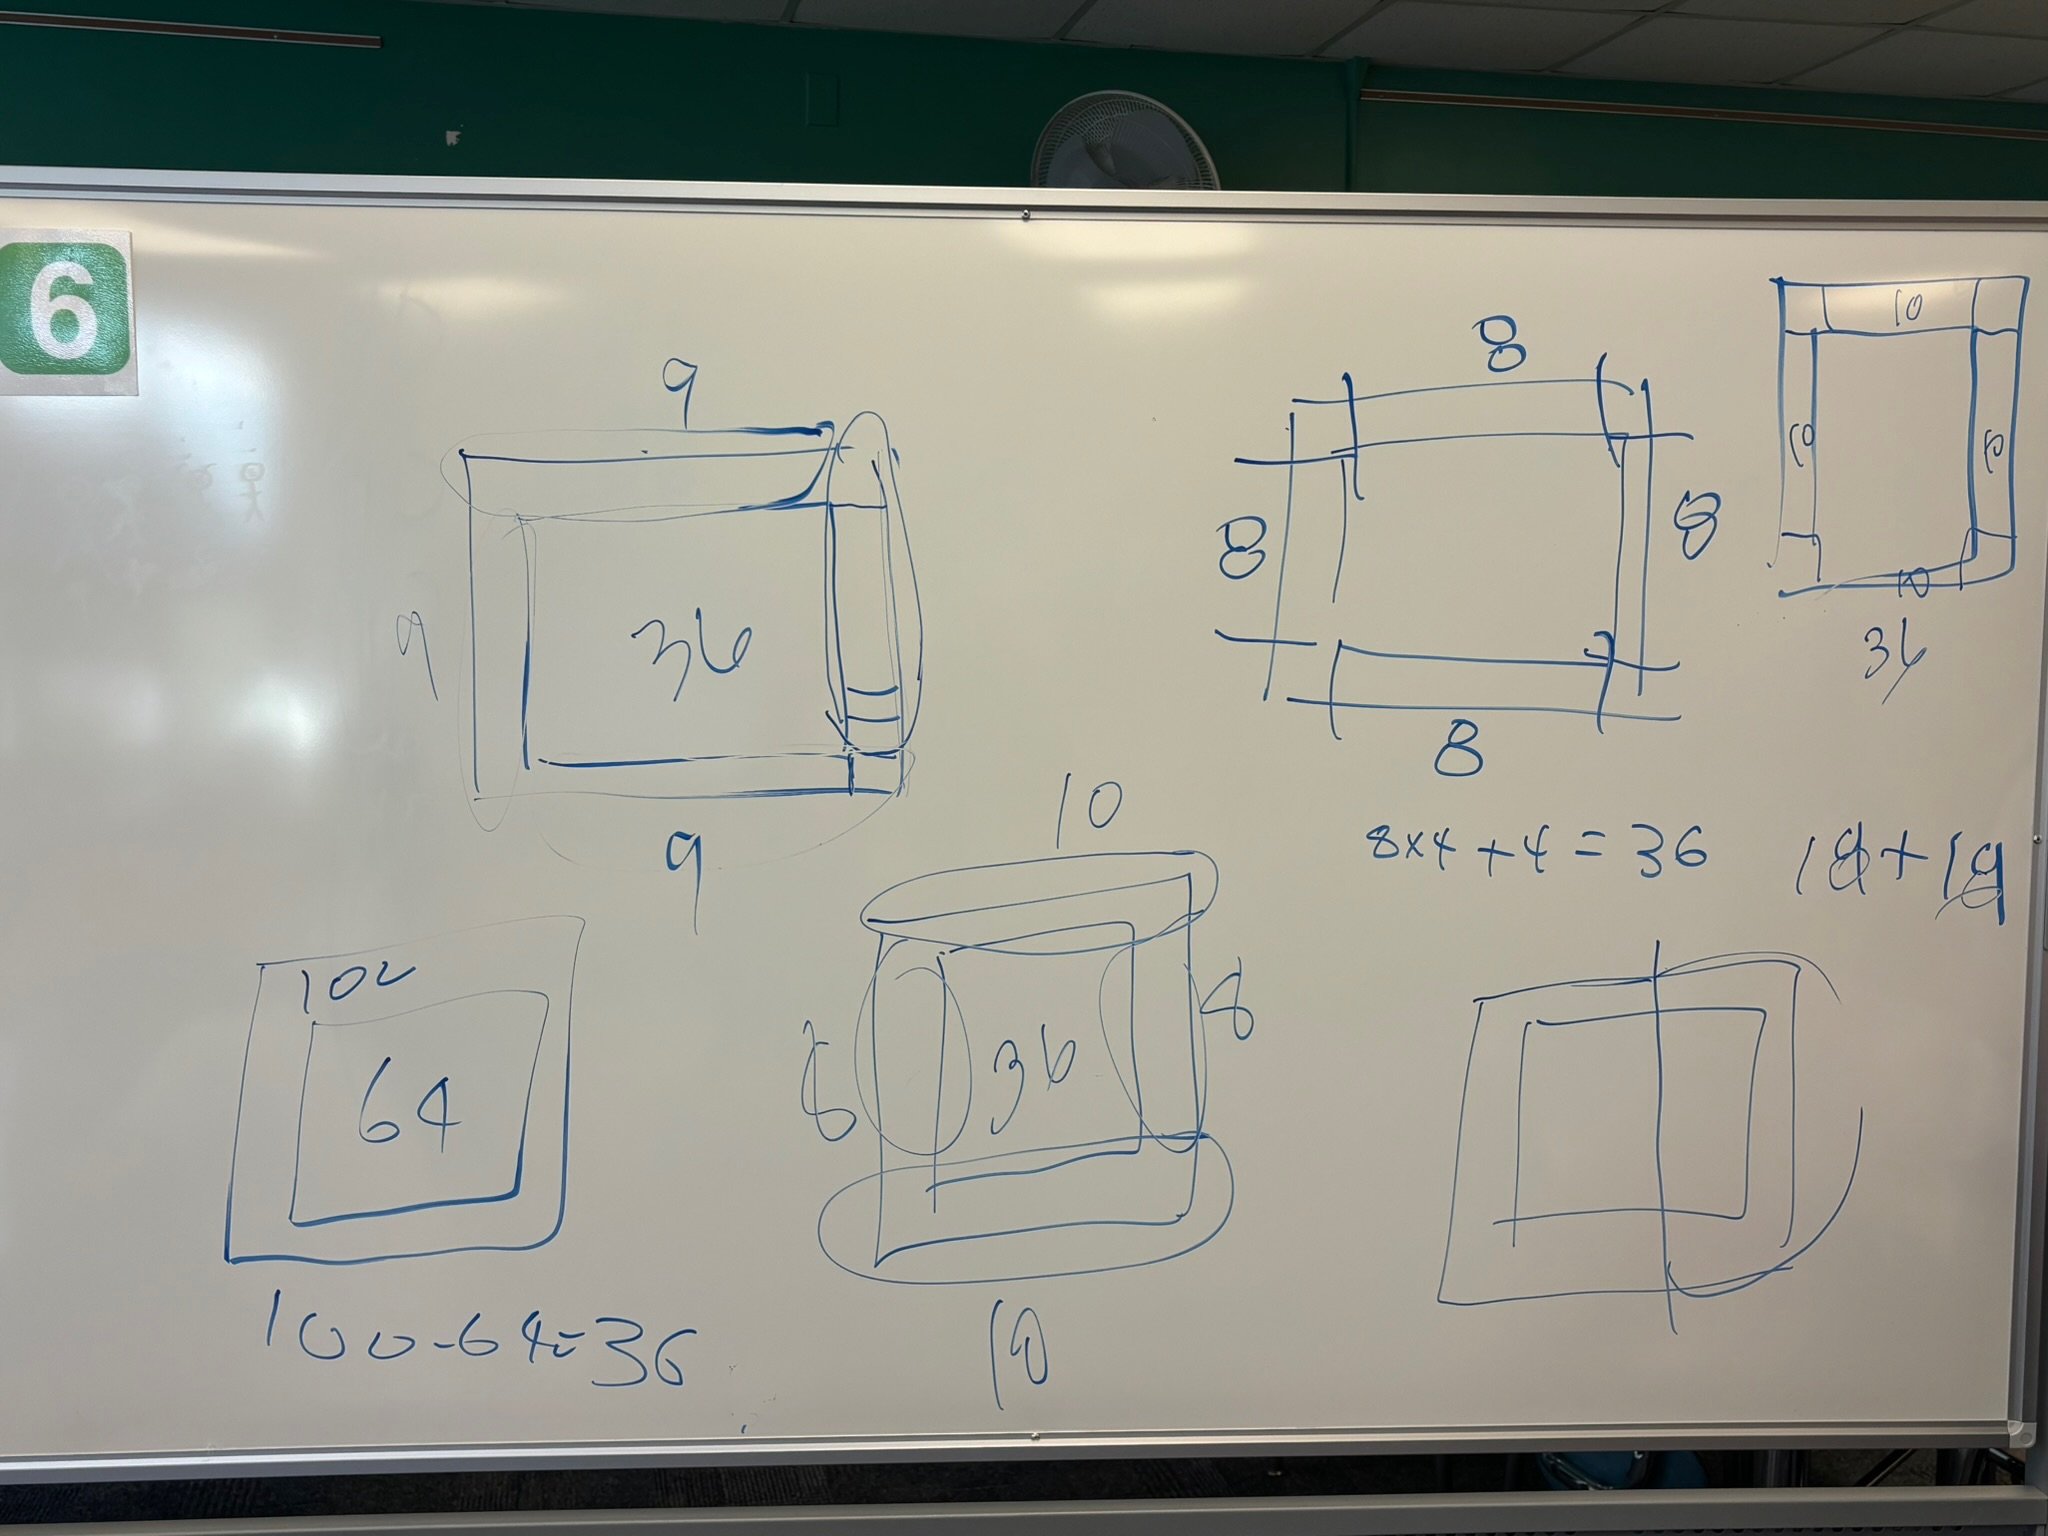 6
9
9
36
9
8
8
8
8
8x4+4=36
10
10
10
10
36
18+18
100
64
100-64=36
10
8
8
36
10